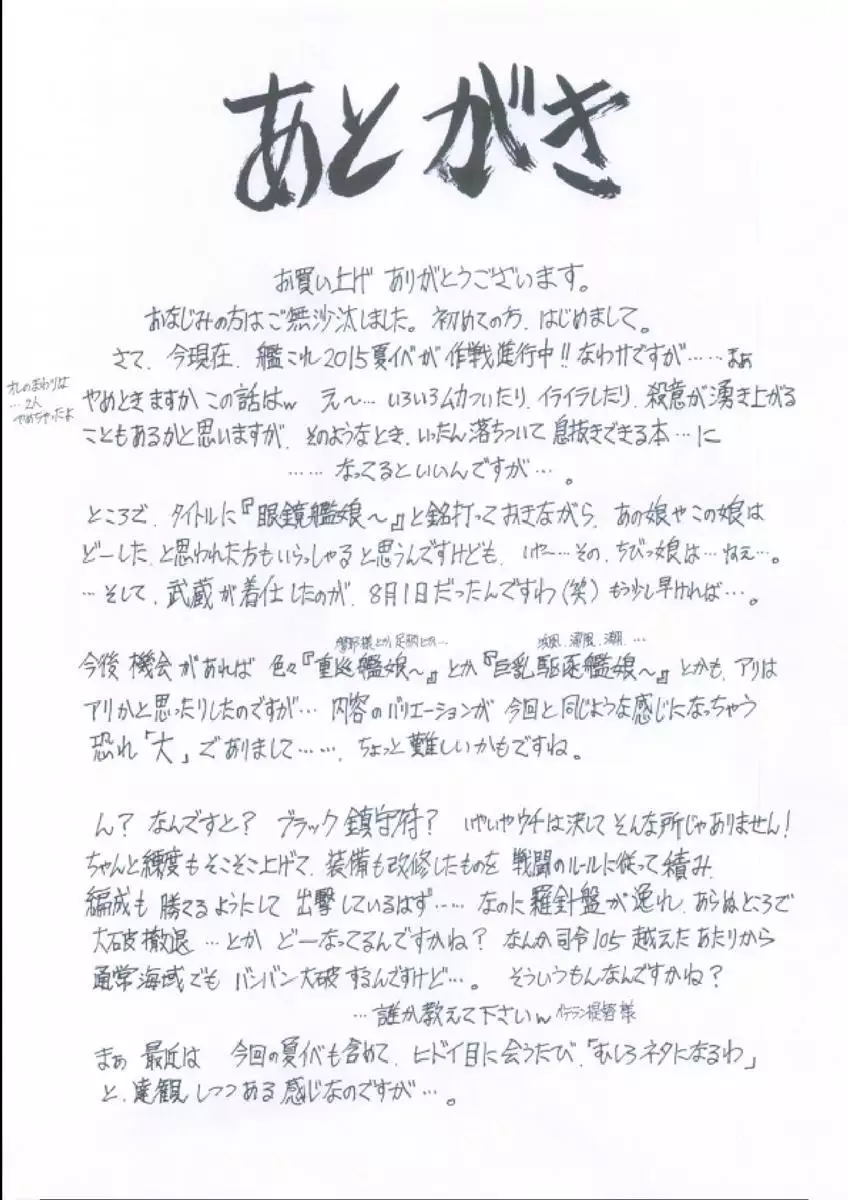 あとがき
お買い上げ ありがとうございます。
おなじみの方はご無沙汰しました。初めての方、はじめまして。
さて、今現在、艦これ2015夏イベが作戦進行中!! なわけですが……まぁ
オレのまわりは
…2人
やめちゃったよ
やめときますか この話はw え〜… いろいろムカついたり、イライラしたり、殺意が湧き上がる
こともあるかと思いますが、そのようなとき、いったん落ちついて 息抜きできる本…に
……なってるといいんですが…。
ところで、タイトルに『眼鏡艦娘〜』と銘打っておきながら、あの娘やこの娘は
どーした、と思われた方もいらっしゃると思うんですけども、いや…その、ちびっ娘は…ねぇ…。
…そして、武蔵が着任したのが、8月1日だったんですわ(笑) もう少し早ければ…。
摩耶様とか、足柄とか…
浜風、浦風、潮、…
今後 機会があれば 色々『重巡艦娘〜』とか『巨乳駆逐艦娘〜』とかも、アリは
アリかと思ったりしたのですが… 内容のバリエーションが 今回と同じような感じになっちゃう
恐れ「大」でありまして……、ちょっと難しいかもですね。
ん? なんですと? ブラック鎮守府? いやいやウチは決してそんな所じゃありません!
ちゃんと練度もそこそこ上げて、装備も改修したものを 戦闘のルールに従って積み、
編成も 勝てるようにして 出撃しているはず…… なのに 羅針盤が逸れ、あらぬところで
大破撤退 …とか どーなってるんですかね? なんか司令105越えたあたりから
通常海域でも バンバン大破するんですけど…。 そういうもんなんですかね?
…誰か教えて下さいw ベテラン提督様
まぁ 最近は 今回の夏イベも含めて、ヒドイ目に会うたび、「むしろネタになるわ」
と、達観しつつある感じなのですが…。